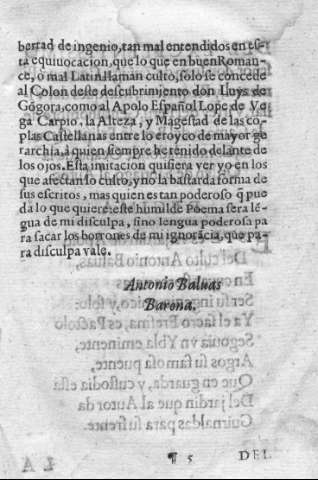 bertad de ingenio, tan mal entendidos en es-
ta equiuocacion, que lo que en buen Roman-
ce, o mal Latin llaman culto, solo se concede
al Colon deste descubrimiento don Luys de
Gógora, como al Apolo Español Lope de Ve
ga Carpio, la Alteza, y Magestad de las co-
plas Castellanas entre lo eroyco de mayor ge
rarchia, à quien siempre he tenido delante de
los ojos. Esta imitacion quisiera ver yo en los
que afectan lo culto, y no la bastarda forma de
sus escritos, mas quien es tan poderoso q̃ pue
da lo que quiere: este humilde Poema sera lé-
gua de mi disculpa, sino lengua poderosa pa
ra sacar los borrones de mi ignorãcia, que pa-
ra disculpa vale.
Antonio Baluas
Barona.
¶ 5
DEL